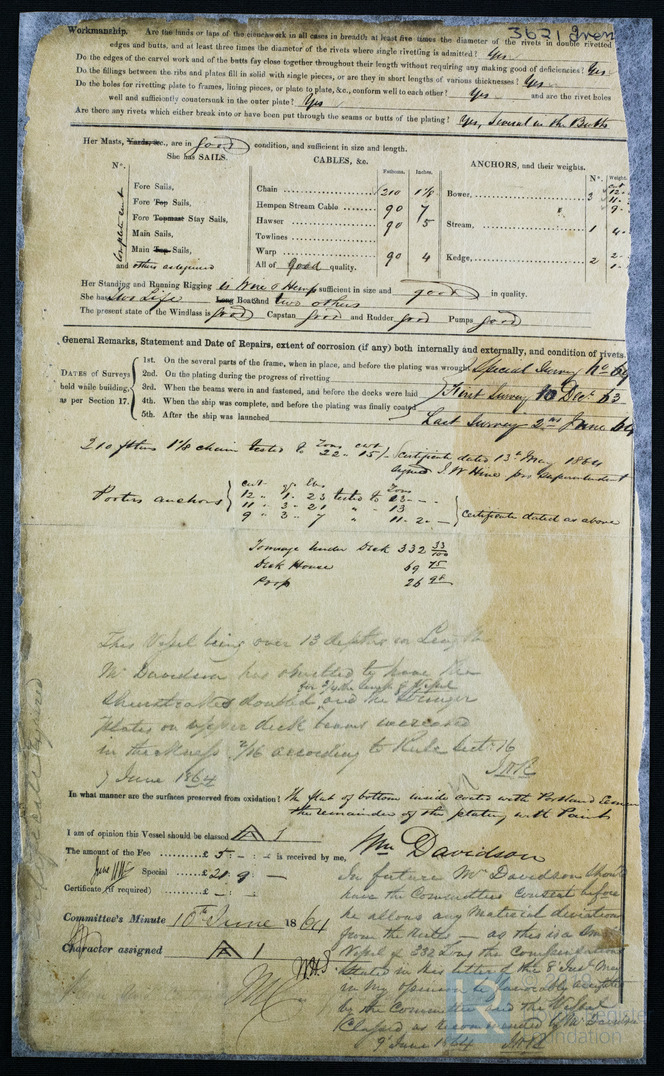 3631 Iron
Workmanship. Are the lands or laps of the clenchwork in all cases in breadth at least five times the diameter of the rivets in double rivetted
edges and butts, and at least three times the diameter of the rivets where single rivetting is admitted? Yes
Do the edges of the carvel work and of the butts fay close together throughout their length without requiring any making good of deficiencies? Yes
Do the fillings between the ribs and plates fill in solid with single pieces, or are they in short lengths of various thicknesses? Yes
Do the holes for rivetting plate to frames, lining pieces, or plate to plate, &c., conform well to each other? Yes and are the rivet holes
well and sufficiently countersunk in the outer plate? Yes
Are there any rivets which either break into or have been put through the seams or butts of the plating? Yes, Several in the Butts
Her Masts, Yards, &c., are in good condition, and sufficient in size and length.
She has SAILS. CABLES, &c. ANCHORS, and their weights.
N°. Fathoms. Inches. N°. Weight.
Fore Sails, Chain 210 1 5/8 Bower, 3 12
Fore Top Sails, Hempen Stream Cable 90 7 11
Fore Topmast Stay Sails, Hawser 90 5 9
Main Sails, Towlines Stream, 1 4
Main Top Sails, Warp 90 4 Kedge, 2 2
and others as required All of good quality. 1
Complete suit
Her Standing and Running Rigging is Wire & Hemp sufficient in size and good in quality.
She has two Life Long Boat and two others
The present state of the Windlass is good Capstan good and Rudder good Pumps good
General Remarks, Statement and Date of Repairs, extent of corrosion (if any) both internally and externally, and condition of rivets.
DATES of Surveys held while building, as per Section 17.
1st. On the several parts of the frame, when in place, and before the plating was wrought Special Survey No 64
2nd. On the plating during the progress of rivetting
3rd. When the beams were in and fastened, and before the decks were laid First Survey 10 Dect 63
4th. When the ship was complete, and before the plating was finally coated
5th. After the ship was launched Last Survey 2nd June 64
210 fthms 1 5/8 chain tested to Tons 22 cwt 15/- certificate dated 13th May 1864
signed J. W Hine pro Superintendent
cwt qr lbs Tons
Porters anchors 12 " 1 " 23 tested to 13 - -
11 " 3 " 21 " " 13
9 " 3 " 7 " 11 " 2 - Certificate dated as above
Tonnage under Deck 332 33/100
Deck House 69 75
Poop 26 92
This Vessel being over 13 depths in Length
Mr Davidson has omitted to have the
Sheerstrakes doubled for 3/4 the length of Vessel and the Stringer
plates on upper deck beams increased
in thickness 2/16 according to Rule Sect: 16
7 June 1864 J.H.R
In what manner are the surfaces preserved from oxidation? The flat of bottom inside coated with Portland Cement
the remainder of the plates, with Paint
I am of opinion this Vessel should be classed A 1
The amount of the Fee £ 5 : - : - is received by me, Wm Davidson
Special £ 20 9 -
Certificate (if required) £ - : - :
Committee's Minute 10th June 1864
Character assigned A 1
In future Mr Davidson should
have the Committees Consent before
he allows any Material deviation
from the Rules — as this is a Small
Vessel of 332 Tons the compensation
stated in his letter of the 8 Inst May
in my opinion be favorably accepted
by the Committee and the Vessel
Classed as recommended by Mr Davidson
9 June 1864 J.H.R
Register
Foundation